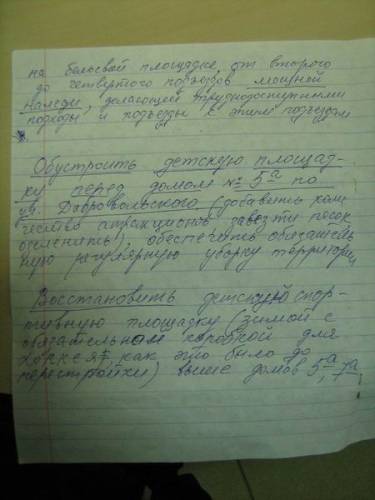 на бельевой площадке, от второго
до четвертого подъездов мощной
наледи, делающей труднодоступными
подходы и подъезды к этим подъездам
Обустроить детскую площад-
ку перед домом № 5а по
ул. Добровольского (добавить коли
чество атракционов, завезти песок
), обеспечить обязатель
ную регулярную уборку территории
Восстановить детскую спор-
тивную площадку (зимой с
обязательной коробкой для
хоккея, как это было до
перестройки) выше домов 5а, 7а